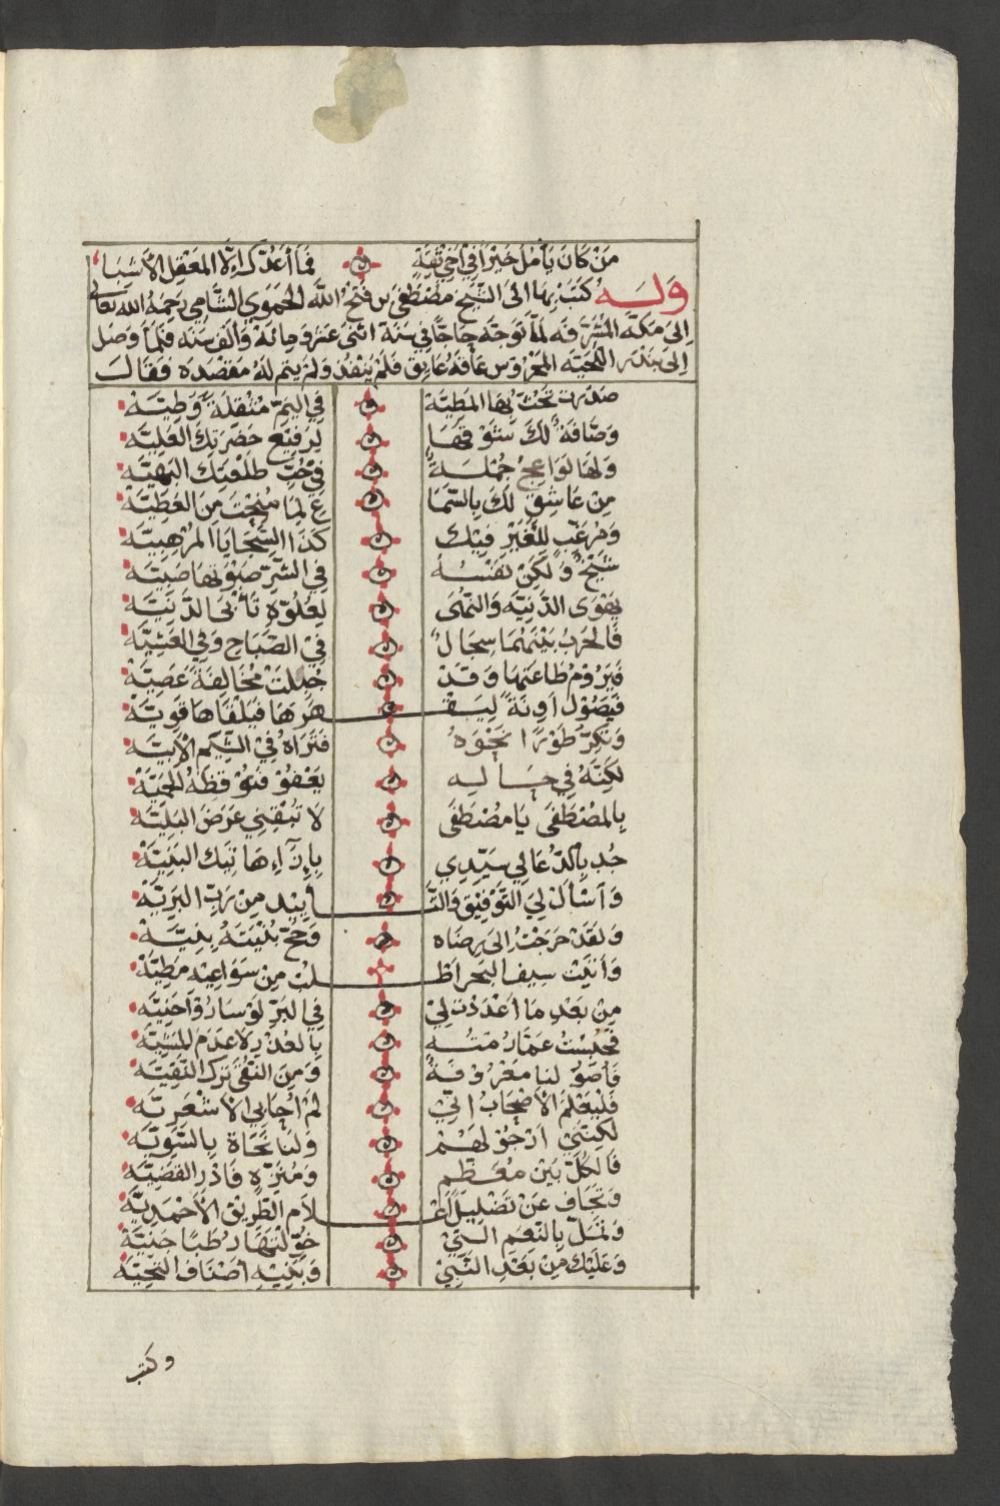 مَنْ كَانَ يَأْمَلُ خَيْرًا فِي أَخِي ثِقَةٍ فَمَا أَعُدُّكَ إِلَّا المَعْقِلَ الأَشِبَا
وَلَهُ كَتَبَ بِهَا الى الشَّيْخ مُصْطَفَى بن فَتْحِ اللَّهِ الحَمَوِي الشَّامِي رَحِمَهُ الله تعالى
إلى مَكَّةَ المُشَرَّفَه لَمَّا تَوَجَّهَ حَاجًّا فِي سَنَة اثْنَى عَشَرَ وَمِائَة وَأَلْف سَنَه فَلَمَّا وَصَل
إلى بَنْدَر اللُّحَيَّه المَحْرُوس عَاقَهُ عَايِق فَلَمْ يَنْفُذ وَلَمْ يَتِم لَهُ مَقْصَدَه فَقَالَ
صَدَرَت تَحُثُّ بِهَا المَطِيَّة فِي اليَمِّ مُثْقَلَةً وَطِيَّه
وَصَّافَةٌ لَكَ شَوْقَهَا لِرَفِيْعِ حَضْرَتِكَ العَلِيَّه
وَلَهَا لَوَاعِجُ جُمْلَةً فِي حُبِّ طَلْعَتِكَ البَهِيَّه
مِن عَاشِقٍ لَكَ بِالسَّمَا عِ لِمَا مُنِحْتَ مِنَ العَطِيَّة
وَمُرَغِّبٍ لِلْغَيْرِ فِيْك كَذَا السَّجَايَا المُرْهِبِيَّه
شَيْخٌ وَلَكِنْ نَفْسُهُ فِي الشَّرِّ صَبْوَتُهَا صَبِيَّه
يَهْوَى الدَّنِيَّه وَالنُّهَى لِعُلُوِّهِ تَأْبَى الدَّنِيَّه
فَالحَرْبُ بَيْنَهُمَا سِجَالٌ فِي الصَّبَاحِ وَفِي العَشِيَّه
فَيَرُوْمُ طَاعَتَهَا وَقَدْ جُبِلَتْ مُخَالِفَةً عَصِيَّة
فَيَصُوْل اونَةً لِيَقْـ ـهَرَهَا فَيَلْقَاهَا قَوِيَّة
وَتَكِرُّ طَوْرًا نَحْوَهُ فَتَرَاهُ فِي الشِّيَمِ الأَبِيَّه
لَكِنَّهُ فِي حَالِهِ يَغْفُوْ فَتُوْقِظُهُ الحَمِيَّة
بِالمُصْطَفَى يَا مُصْطَفَى لَا تُبْقِنِي غَرَضَ البَلِيَّه
جُد بِالدُّعَا لِي سَيِّدِي بِإِزَآءِ هَاتِيكَ البَنِيَّة
وَاسْأَل لِيَ التَّوْفِيْقَ وَالتَّأ يِيْد مِن رَبِّ البَرِيَّة
وَلَقَدْ خَرَجْتُ الى رِضَاه وَحَجِّ بُنْيَتِهِ بِنِيَّه
وَأَتَيْتُ سِيفَ البَحر اظْـ ـلُبُ مِن سَوَاعِيْهِ مَطِيَّة
مِن بَعْدِ مَا أَعْدَدْتُ لِيْ فِي البَرِّ لَوْ سَارُوا حَنِيَّه
فَحُبِسْتُ عَمَّا رُمْتُهُ بِالعُذْرِ لَا عَدَمِ المَشِيَّة
وَمِنَ التُّقَى تَرْك التَّقِيَّه
فَلْيَعْلَمِ الأَصْحَابُ انِّيْ لَمْ
لَكِنَّنِي ارْجُوْ لَهُمْ وَلَنَا نَجَاةً بِالسَّوِيَّه
فَالكُلُّ بَيْنَ مُعَظِّمٍ وَمُنَزِّهٍ فَادْرِ القَضِيَّه
وَتَجَافَ عَنْ تَضْلِيْلِ اعْـ ـلَام الطَّرِيْقِ الأَحْمَدِيَّة
وَتَمَلَّ بِالنِّعَمِ الَّتِي خُوِّلْتَهَا رُطَبًا جَنِيَّة
وَعَلَيْك مِنْ بَعْدِ النَّبِيْ وَبَنِيْهِ أَصْنَافُ التَّحِيَّه
وكتب